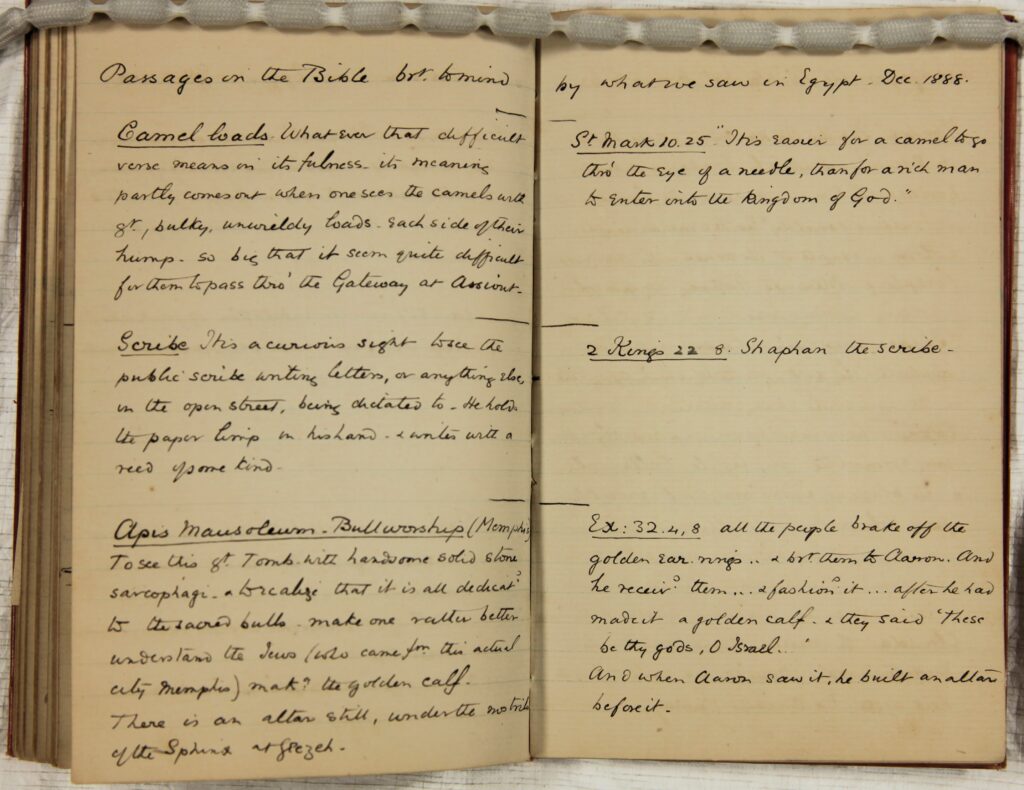 Passages in the Bible brt. to mind
Camel loads. Whatever that difficult
verse means in its fulness - its meaning
partly comes out when one sees the camels with
gt, bulky, unwieldy loads - Each side of their
hump - so big that it seem quite difficult
for them to pass thro' the Gateway at Assiout -
Scribe It is a curious sight to see the
public scribe writing letters, or anything else,
in the open street, being dictated to - He holds
the paper limp in his hand - & writes with a
reed of some kind -
Apis Mausoleum - Bull worship (Memphis)
To see this gt. Tomb with handsome solid stone
sarcophagi - & to realize that it is all dedicatd
to the sacred bulls - make one rather better
understand the Jews (who came from this actual
city Memphis) makg the golden calf.
There is an altar still, under the nostrils
of the Sphinx at Geezeh -
by what we saw in Egypt - Dec. 1888.
St Mark 10.25 "It is easier for a camel to go
thro' the eye of a needle, than for a rich man
to enter into the kingdom of God."
2 Kings 22 8. Shaphan the scribe -
Ex: 32.4,8 all the people brake off the
golden ear.rings .. & brt. them to Aaron. And
he receivd them ... & fashiond it ... after he had
made it a golden calf - & they said 'These
be thy gods, O Israel..
And when Aaron saw it, he built an altar
before it -